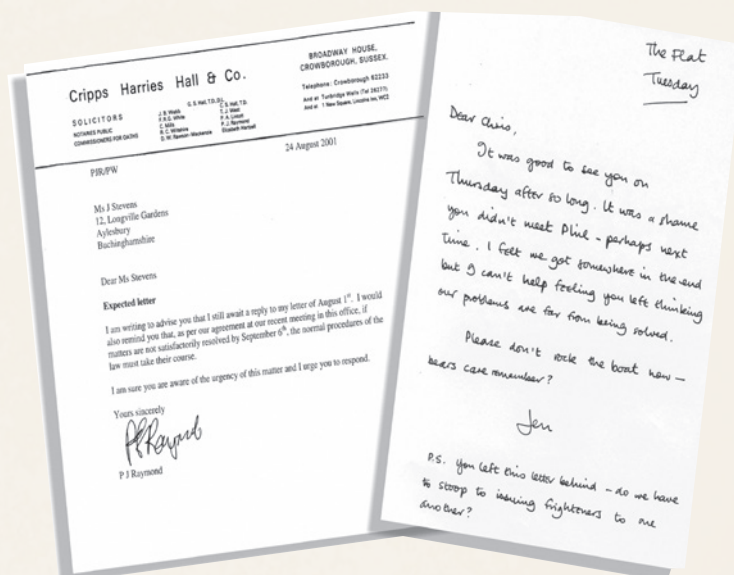 Cripps Harries Hall & Co.
SOLICITORS
NOTARIES PUBLIC
COMMISSIONERS FOR OATHS
G. S. Hall, T.D.
C. Mills
P. J. Raymond
BROADWAY HOUSE,
CROWBOROUGH, SUSSEX.
Telephone: Crowborough
And at Tunbridge Wells
And at 1 New Square, Lincolns Inn, WC2.
24 August 2001
PJR/PW
Ms J Stevens
12, Longville Gardens
Aylesbury
Buchinghamshire
Dear Ms Stevens
Expected letter
I am writing to advise you that I still await a reply to my letter of August 1st. I would
also remind you that, as per our agreement at our recent meeting in this office, if
matters are not satisfactorily resolved by September 6th, the normal procedures of the
law must take their course.
I am sure you are aware of the urgency of this matter and I urge you to respond.
Yours sincerely
PJRaymond
P J Raymond
The Flat
Tuesday
Dear Chris,
It was good to see you on
Thursday after so long. It was a shame
you didn't meet Clive - perhaps next
time. I felt we got somewhere in the end
but I can't help feeling you left thinking
our problems are far from being solved.
Please don't rock the boat now -
bears care remember?
Jen
P.S. You left this letter behind - do we have
to stoop to issuing frighteners to one
another?